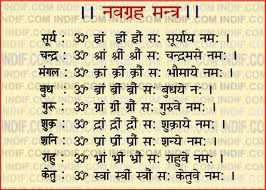 ।। नवग्रह मन्त्र ।।
सूर्य : ॐ ह्रां ह्रीं ह्रौं सः सूर्याय नमः ।
चन्द्र : ॐ श्रां श्रीं श्रौं सः चन्द्रमसे नमः ।
मंगल : ॐ क्रां क्रीं क्रौं सः भौमाये नमः ।
बुध : ॐ ब्रां ब्रीं ब्रौं सः बुधये नः ।
गुरू : ॐ ग्रां ग्रीं ग्रौं सः गुरुवे नमः ।
शुक्र : ॐ द्रां द्रीं द्रौं सः शुक्राये नमः ।
शनि : ॐ प्रां प्रीं प्रौं सः शन्ये नमः ।
राहु : ॐ भ्रां भ्रीं भ्रौं सः राहुवे नमः ।
केतु : ॐ स्त्रां स्त्रीं स्त्रौं सः केतुवे नमः ।